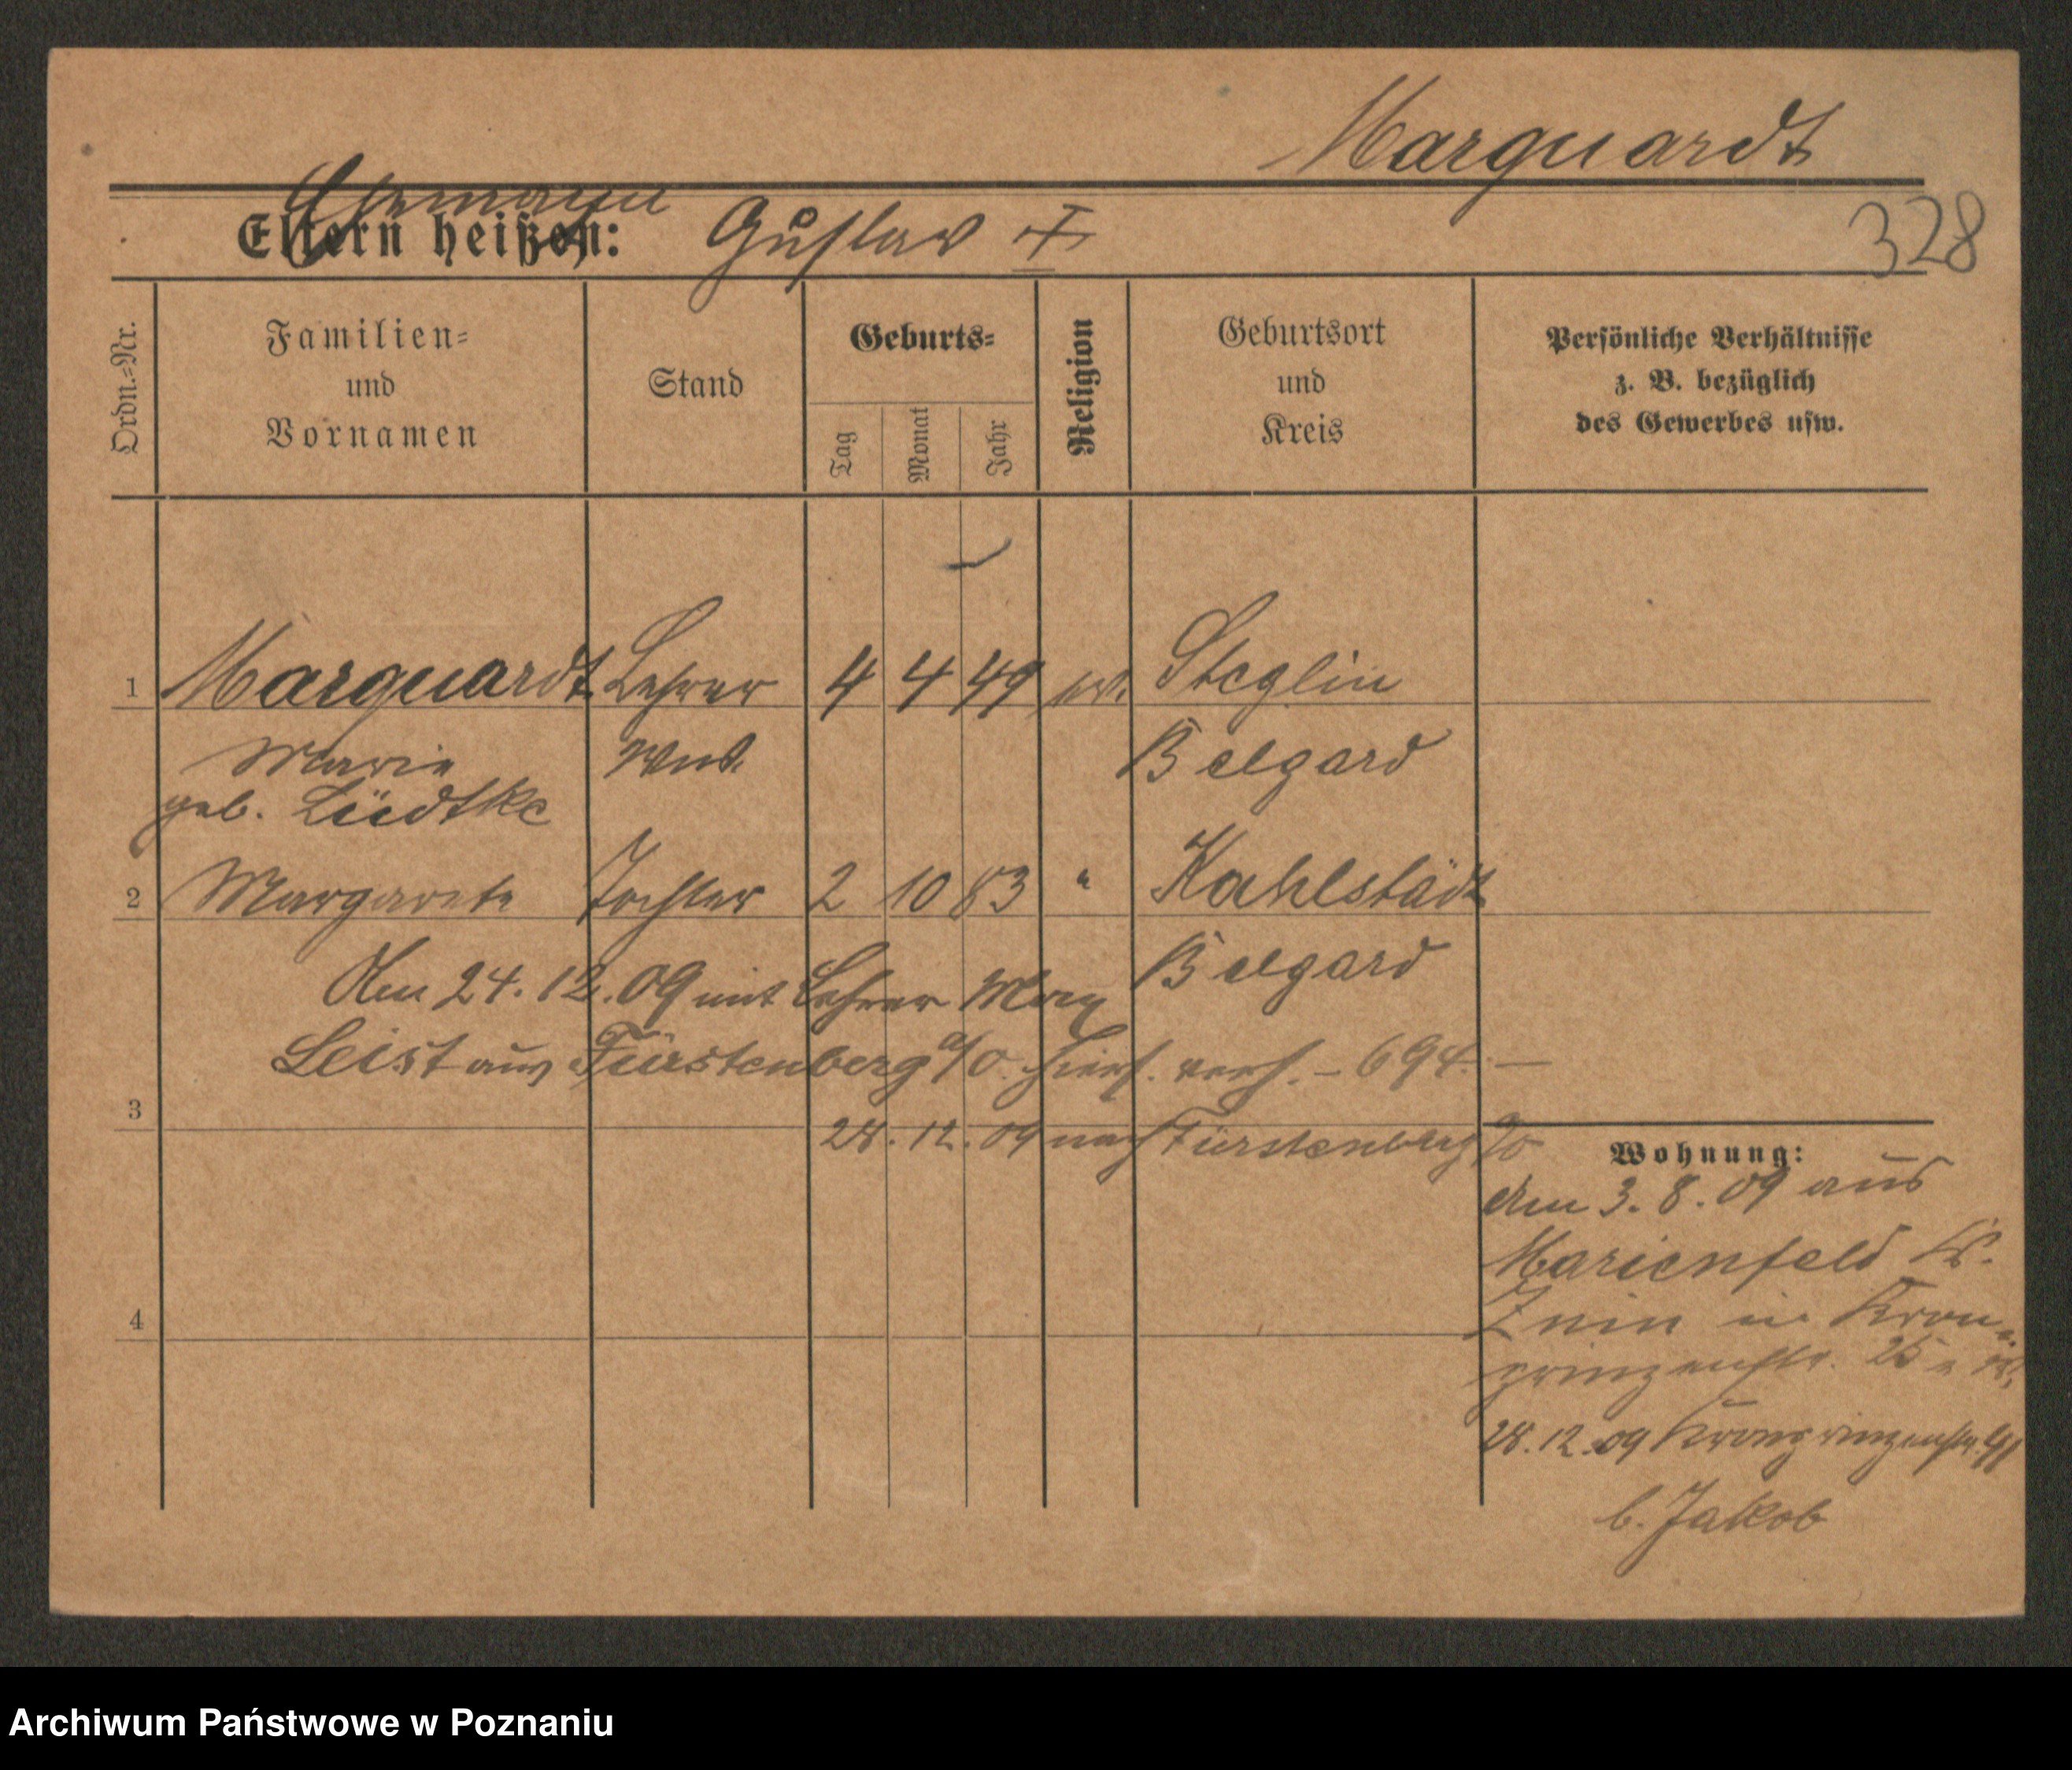 Marquardt
Ehemann
Eltern heißen: Gustav †
328
Ordn.-Nr.
Familien-
und
Vornamen
Stand
Geburts-
Tag
Monat
Jahr
Religion
Geburtsort
und
Kreis
Persönliche Verhältnisse
z. B. bezüglich
des Gewerbes usw.
1 Marquardt Lehrer 4 4 49 ev. Steglin
Marie Wwe. Belgard
geb. Lüdtke
2 Margarete Tochter 2 10 83 " Kahlstädt
Belgard
Am 24.12.09 mit Lehrer Max
Leist aus Fürstenberg a/O. hiers. verh. – 694. —
3
28.12.09 nach Fürstenberg a/O
Wohnung:
Am 3.8.09 aus
Marienfeld Kr.
4
Znin in Kron-
prinzenstr. 25
28.12.09 Kronprinzenstr. 91
b. Jakob
Archiwum Państwowe w Poznaniu